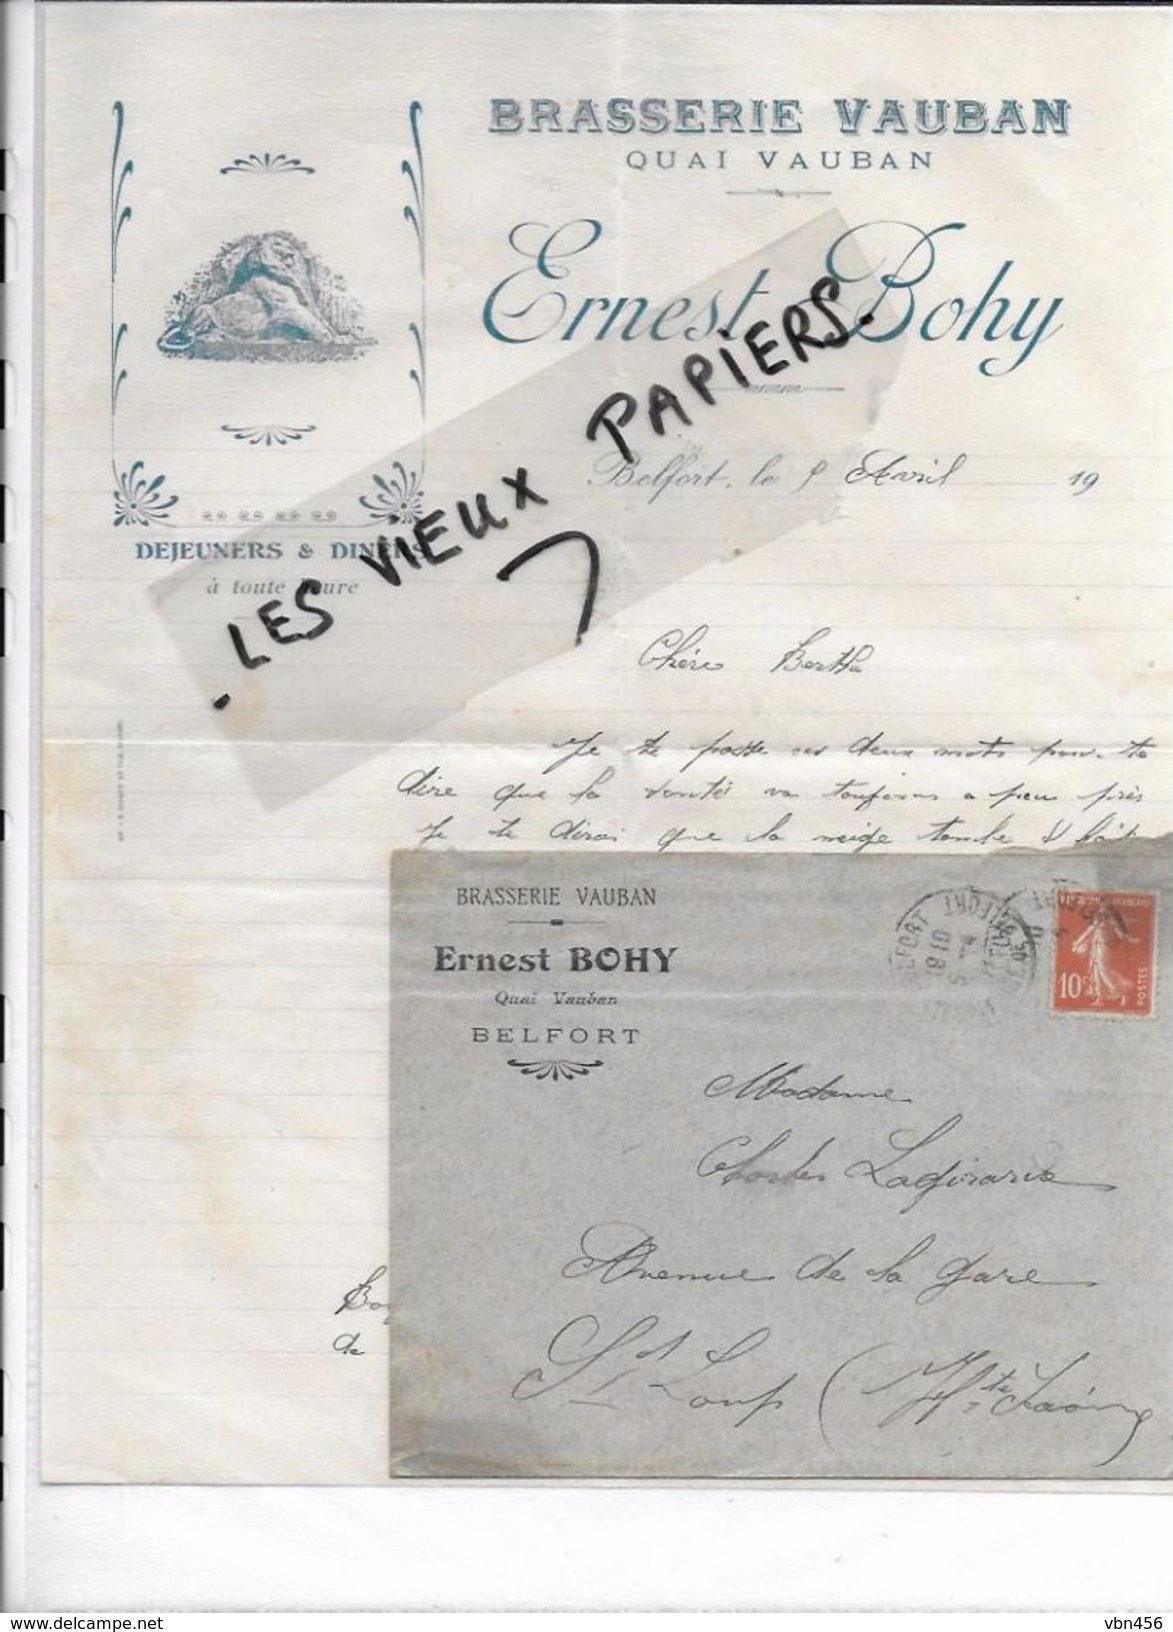 BRASSERIE VAUBAN
QUAI VAUBAN
Ernest Bohy
DEJEUNERS & DINERS
à toute heure
. LES VIEUX PAPIERS.
Belfort, le 5 Avril 19
Chère Berthe
Je te poste ces deux mots pour te
dire que la santé va toujours a peu près
Je te dirai que la neige tombe
BRASSERIE VAUBAN
Ernest BOHY
Quai Vauban
BELFORT
BELFORT
10c
POSTES
Madame
Charles
Avenue de la gare
St Loup (Hte Saône)
de
delcampe.net
vbn456